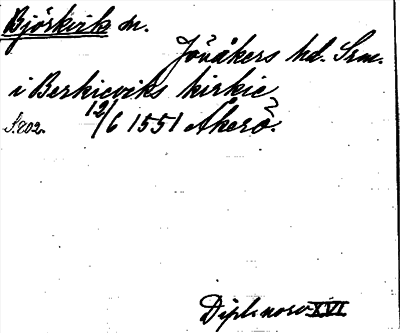 Björkvik sn.
Jönåkers hd. Srm.
i Berkieviks kirkie
S. 202. 12/6 1551 Åkerö.
Dipl. norv. XVI